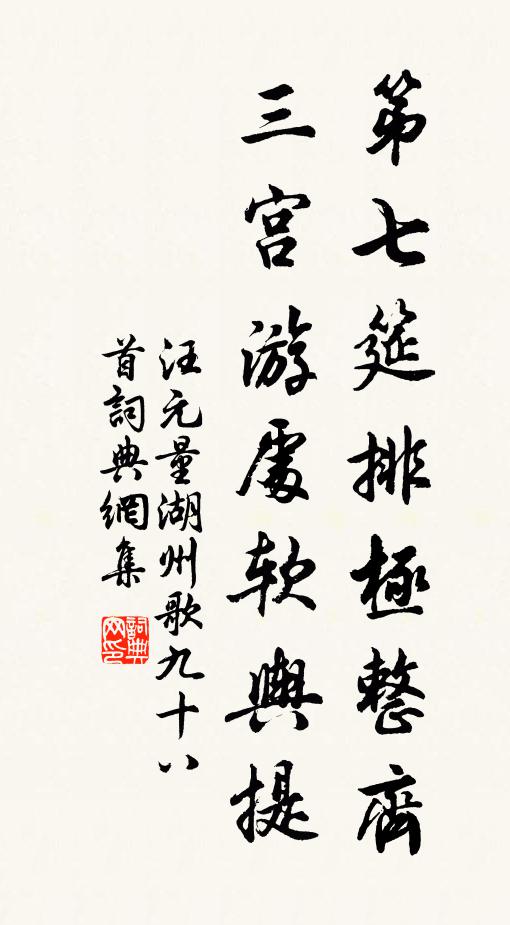 第七筵排極整齊
三宮游處軟輿提
汪元量湖州歌九十八
首詞典網集
詞典网印